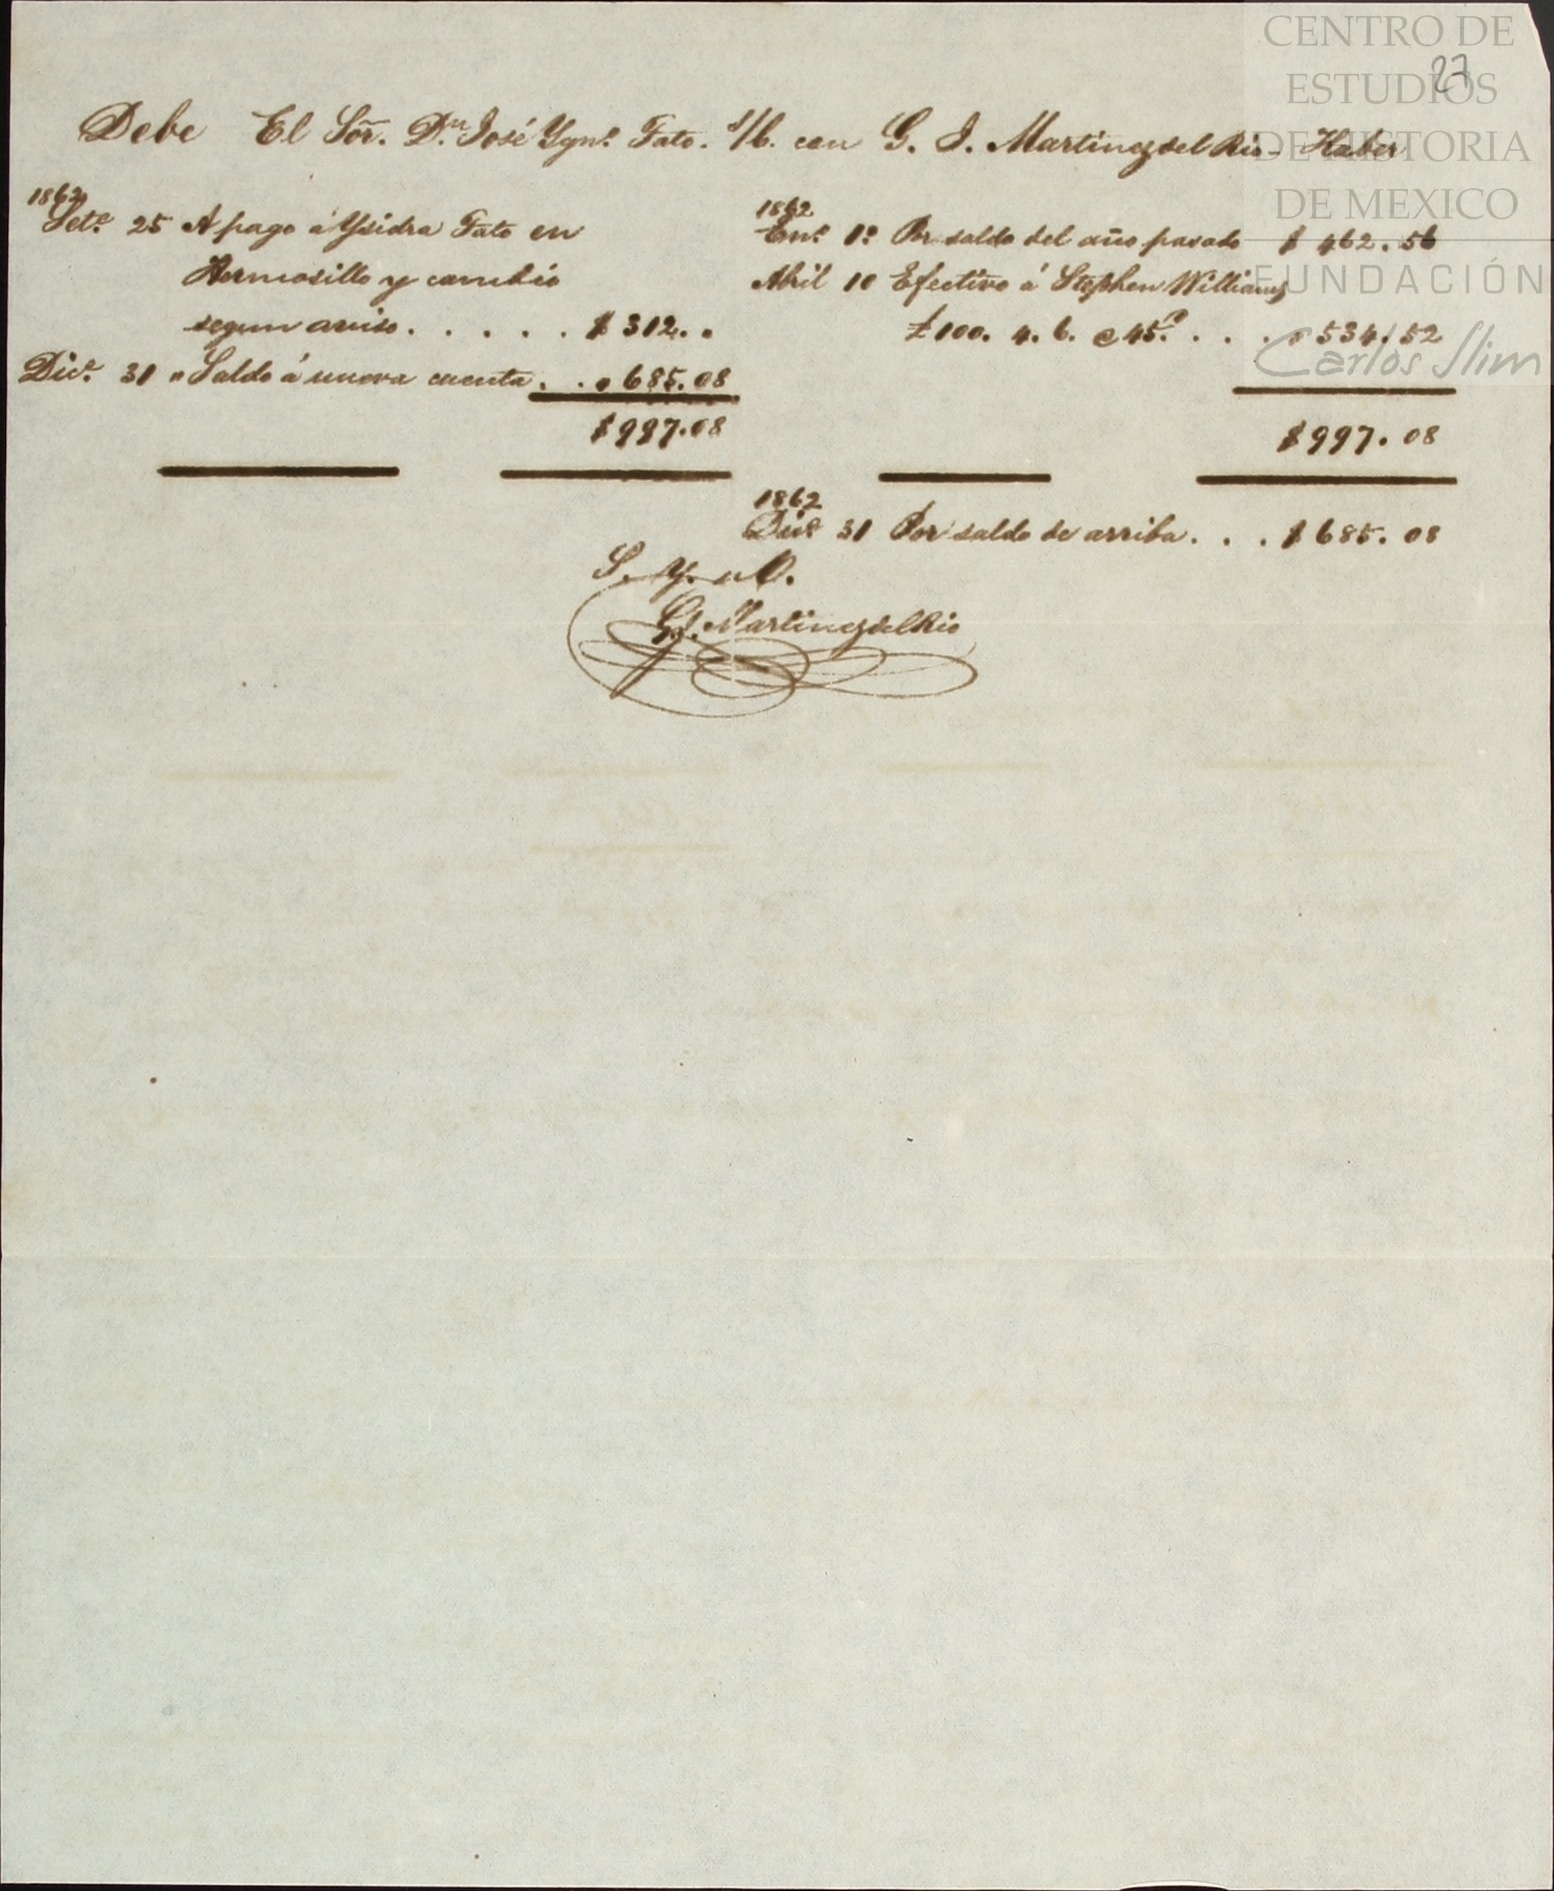 CENTRO DE
ESTUDIOS
DE HISTORIA
DE MEXICO
FUNDACIÓN
Carlos Slim
27
Debe El Sõr. Dn. José Ygno. Tato. s/c. con G. J. Martinez del Rio - Haber
1862
Sete. 25 A pago á Ysidra Tato en
Hermosillo y cambio
segun aviso . . . . . $ 312. "
Dice. 31 " Saldo á nueva cuenta . . " 685.08
$ 997.08
1862
Eno. 1o. Por saldo del año pasado $ 462.56
Abril 10 Efectivo á Stephen Williams
£100. 4. 6. @ 45. . . . " 534.52
$ 997.08
1862
Dice. 31 Por saldo de arriba . . . $ 685.08
S. Y. u O.
G. J. Martinez del Rio